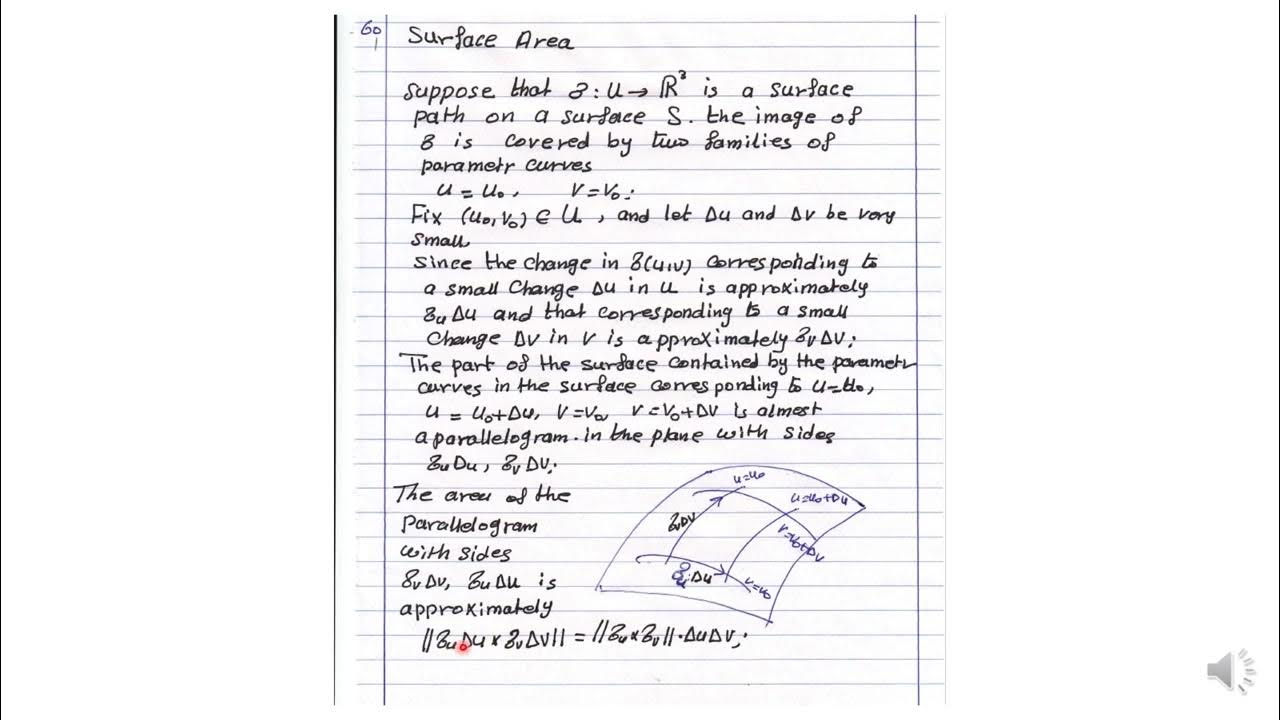 60
1
Surface Area
suppose that 𝝈 : U → ℝ³ is a surface
path on a surface S. the image of
𝝈 is covered by two families of
parametr curves
u = u₀, v = v₀;
Fix (u₀, v₀) ∈ U, and let Δu and Δv be very
small
since the change in 𝝈(u,v) corresponding to
a small change Δu in u is approximately
𝝈ᵤ Δu and that corresponding to a small
change Δv in v is approximately 𝝈ᵥ Δv;
The part of the surface contained by the parametr
curves in the surface corresponding to u=u₀,
u = u₀+Δu, v=v₀, v=v₀+Δv is almost
a parallelogram. in the plane with sides
𝝈ᵤ Δu, 𝝈ᵥ Δv;
The area of the
parallelogram
with sides
𝝈ᵥ Δv, 𝝈ᵤ Δu is
approximately
||𝝈ᵤ Δu × 𝝈ᵥ Δv|| = ||𝝈ᵤ × 𝝈ᵥ||·Δu Δv;
u=u₀
u=u₀+Δu
𝝈ᵥ Δv
v=v₀+Δv
𝝈ᵤ·Δu
v=v₀